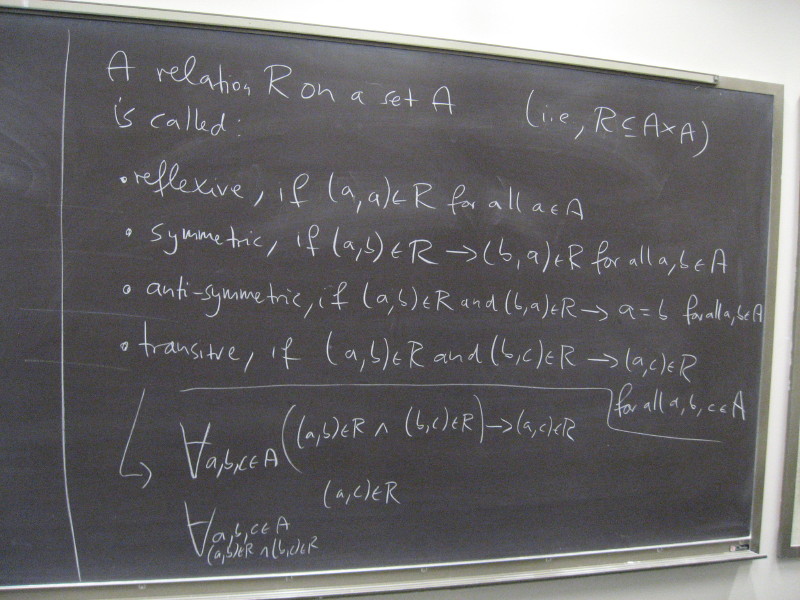 A relation R on a set A (i.e., R ⊆ A×A)
is called:
• reflexive, if (a,a) ∈ R for all a ∈ A
• symmetric, if (a,b) ∈ R → (b,a) ∈ R for all a,b ∈ A
• anti-symmetric, if (a,b) ∈ R and (b,a) ∈ R → a = b for all a,b ∈ A
• transitive, if (a,b) ∈ R and (b,c) ∈ R → (a,c) ∈ R
for all a,b,c ∈ A
∀a,b,c∈A ((a,b)∈R ∧ (b,c)∈R) → (a,c)∈R
(a,c)∈R
∀a,b,c∈A
(a,b)∈R ∧ (b,c)∈R